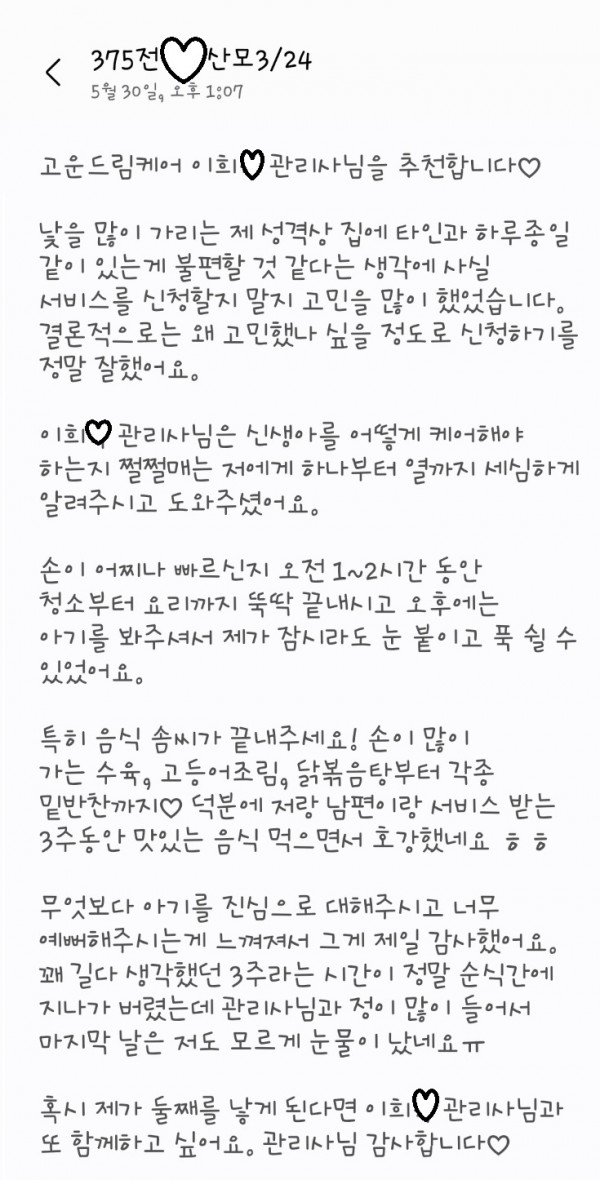 375전♡산모3/24
5월 30일, 오후 1:07
고운드림케어 이희♡관리사님을 추천합니다♡
낯을 많이 가리는 제 성격상 집에 타인과 하루종일
같이 있는게 불편할 것 같다는 생각에 사실
서비스를 신청할지 말지 고민을 많이 했었습니다.
결론적으로는 왜 고민했나 싶을 정도로 신청하기를
정말 잘했어요.
이희♡관리사님은 신생아를 어떻게 케어해야
하는지 쩔쩔매는 저에게 하나부터 열까지 세심하게
알려주시고 도와주셨어요.
손이 어찌나 빠르신지 오전 1~2시간 동안
청소부터 요리까지 뚝딱 끝내시고 오후에는
아기를 봐주셔서 제가 잠시라도 눈 붙이고 푹 쉴 수
있었어요.
특히 음식 솜씨가 끝내주세요! 손이 많이
가는 수육, 고등어조림, 닭볶음탕부터 각종
밑반찬까지♡ 덕분에 저랑 남편이랑 서비스 받는
3주동안 맛있는 음식 먹으면서 호강했네요 ㅎㅎ
무엇보다 아기를 진심으로 대해주시고 너무
예뻐해주시는게 느껴져서 그게 제일 감사했어요.
꽤 길다 생각했던 3주라는 시간이 정말 순식간에
지나가 버렸는데 관리사님과 정이 많이 들어서
마지막 날은 저도 모르게 눈물이 났네요ㅠ
혹시 제가 둘째를 낳게 된다면 이희♡관리사님과
또 함께하고 싶어요. 관리사님 감사합니다♡